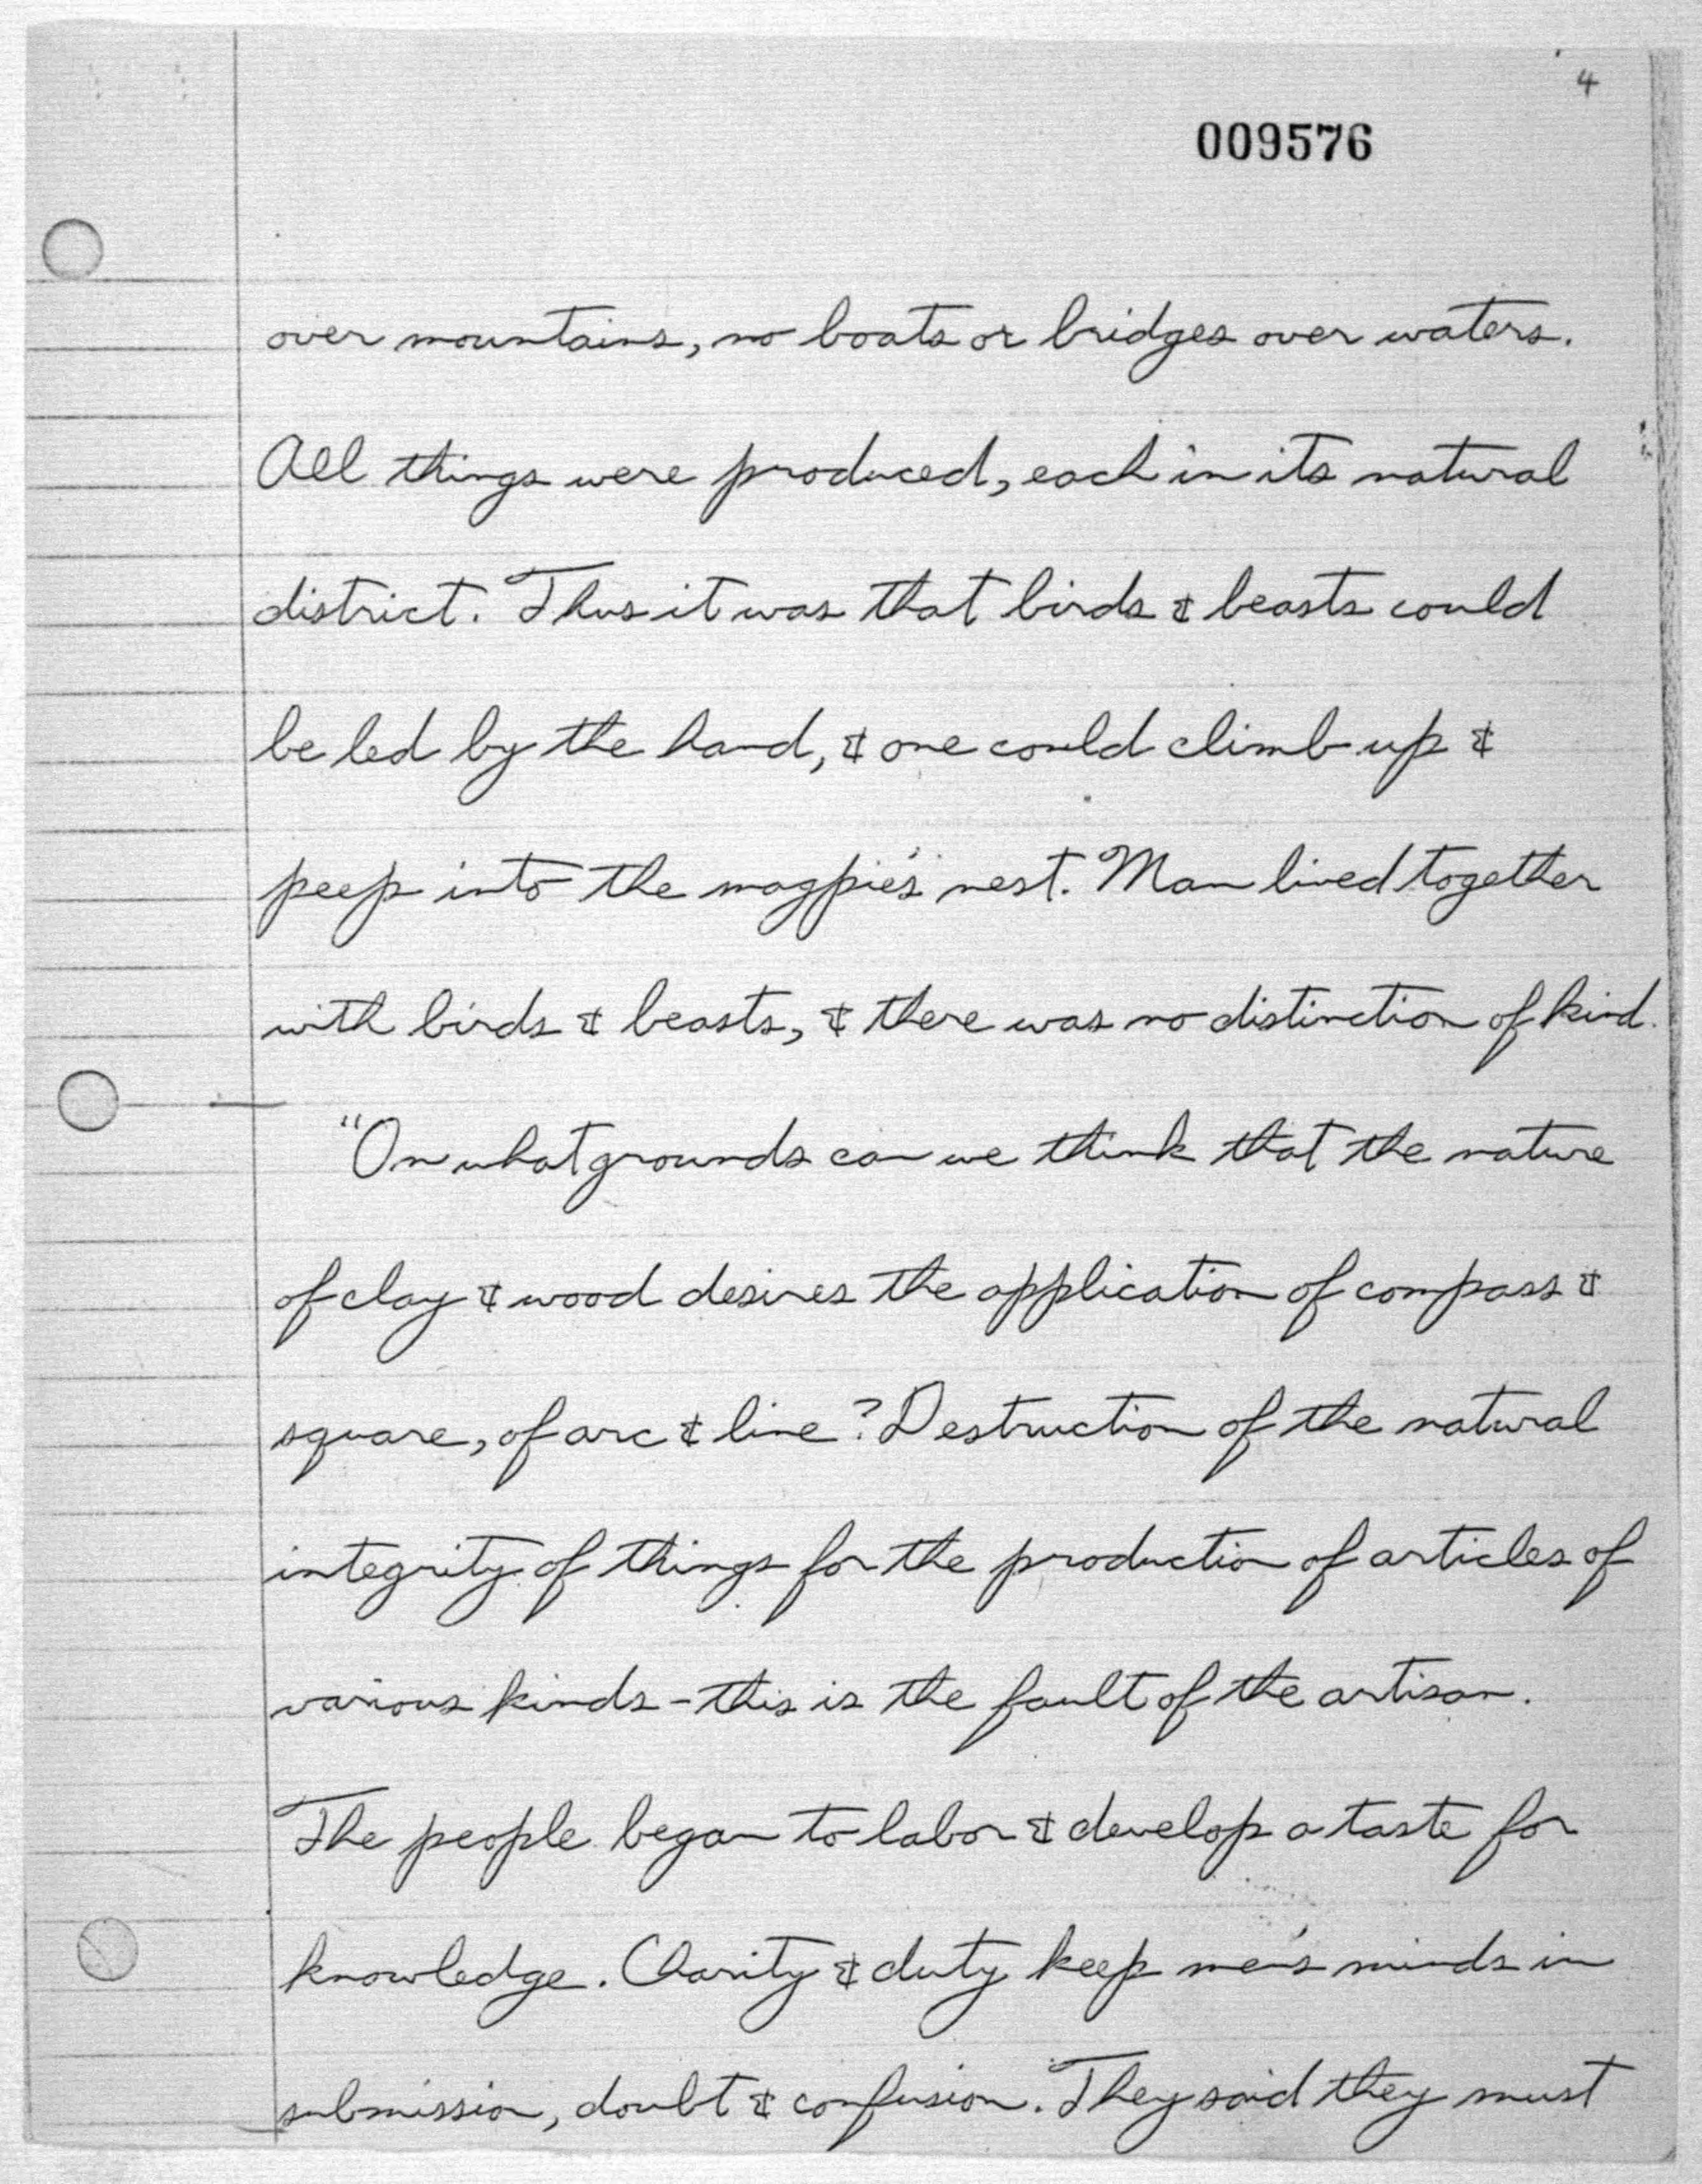 4
009576
over mountains, no boats or bridges over waters.
All things were produced, each in its natural
district. Thus it was that birds & beasts could
be led by the hand, & one could climb up &
peep into the magpie's nest. Man lived together
with birds & beasts, & there was no distinction of kind.
"On what grounds can we think that the nature
of clay & wood desires the application of compass &
square, of arc & line? Destruction of the natural
integrity of things for the production of articles of
various kinds - this is the fault of the artisan.
The people began to labor & develop a taste for
knowledge. Charity & duty keep men's minds in
submission, doubt & confusion. They said they must